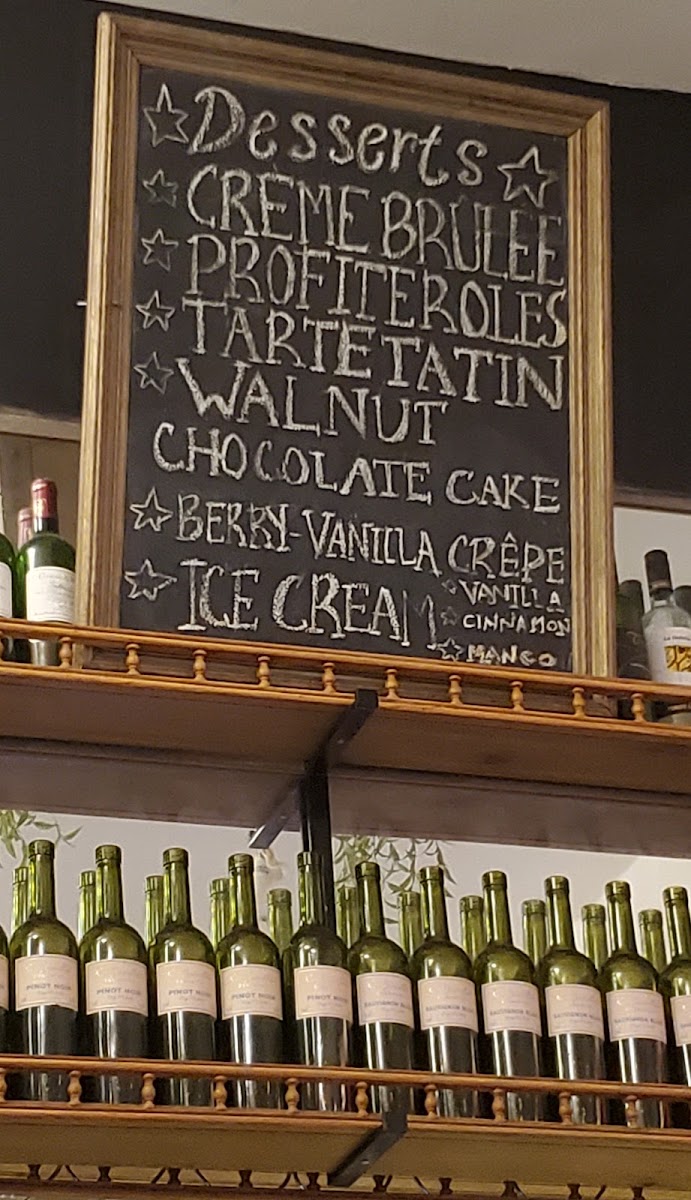 Desserts
CREME BRULEE
PROFITEROLES
TARTE TATIN
WALNUT
CHOCOLATE CAKE
BERRY-VANILLA CRÊPE
ICE CREAM
VANILLA
CINNAMON
MANGO
PINOT NOIR
PINOT NOIR
PINOT NOIR
PINOT NOIR
PINOT NOIR
SAUVIGNON BLANC
SAUVIGNON BLANC
SAUVIGNON BLANC
SAUVIGNON BLANC
SAUVIGNON BLANC